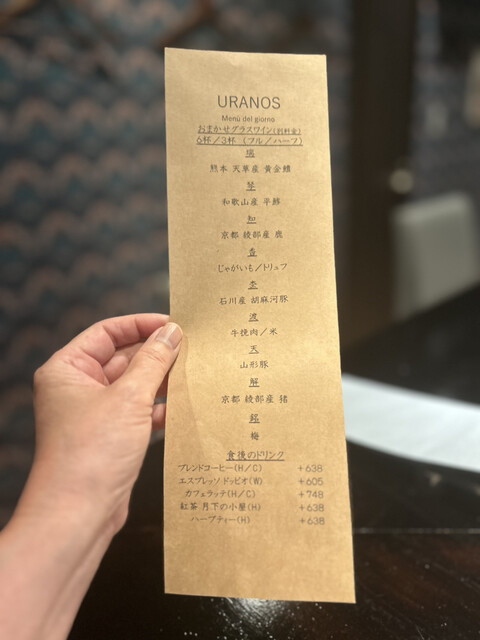 URANOS
Menù del giorno
おまかせグラスワイン(別料金)
6杯／3杯 （フル／ハーフ）
瑞
熊本 天草産 黄金鱧
琴
和歌山産 平鯵
知
京都 綾部産 鹿
杳
じゃがいも／トリュフ
杢
石川産 胡麻河豚
渡
牛挽肉／米
天
山形豚
解
京都 綾部産 猪
銘
梅
食後のドリンク
ブレンドコーヒー(H/C) +638
エスプレッソ ドッピオ(W) +605
カフェラッテ(H/C) +748
紅茶 月下の小屋(H) +638
ハーブティー(H) +638